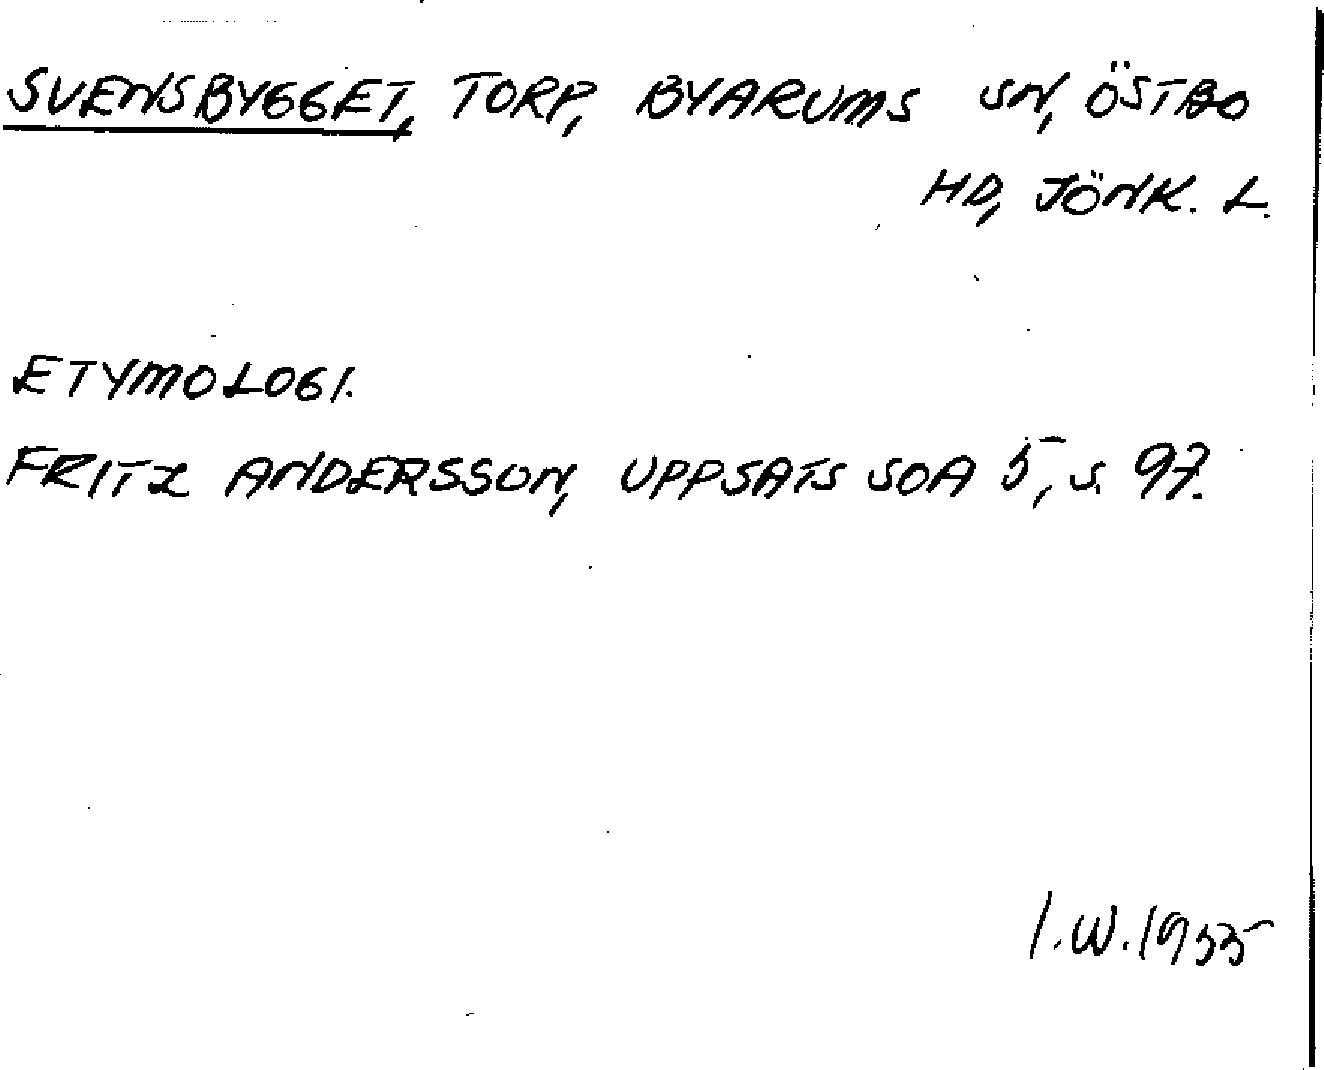 SVENSBYGGET, TORP, BYARUMS SN, ÖSTBO
HD, JÖNK. L.
ETYMOLOGI.
FRITZ ANDERSSON, UPPSATS SOA 5, S. 97.
I.W. 1935